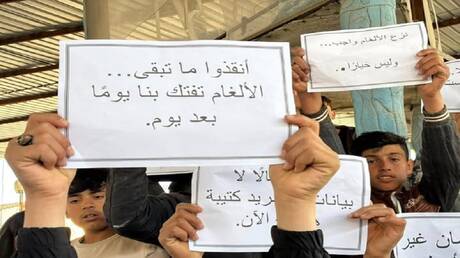 أنقذوا ما تبقى...
الألغام تفتك بنا يومًا
بعد يوم.
نزع الألغام واجب...
وليس خيارًا.
لا
بيانات
كتيبة
الآن.
غير